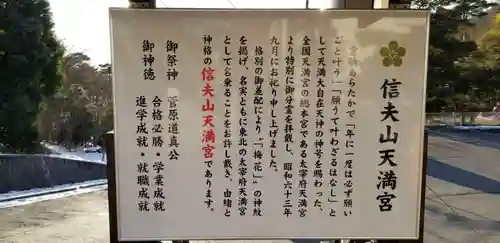 信夫山天満宮
霊験あらたかで「一年に一度は必ず願い
ごと叶う」「願うて叶わざるはなし」と
して天満大自在天神の神号を賜わった、
全国天満宮の総本宮である太宰府天満宮
より特別に御分霊を拝戴し、昭和六十三年
九月にお祀り申し上げました。
格別の御差配により「梅花」の神紋
を掲げ、名実ともに東北の太宰府天満宮
として名乗ることをお許し戴き、由緒と
神格の信夫山天満宮であります。
御祭神　菅原道真公
御神徳　合格必勝・学業成就
進学成就・就職成就